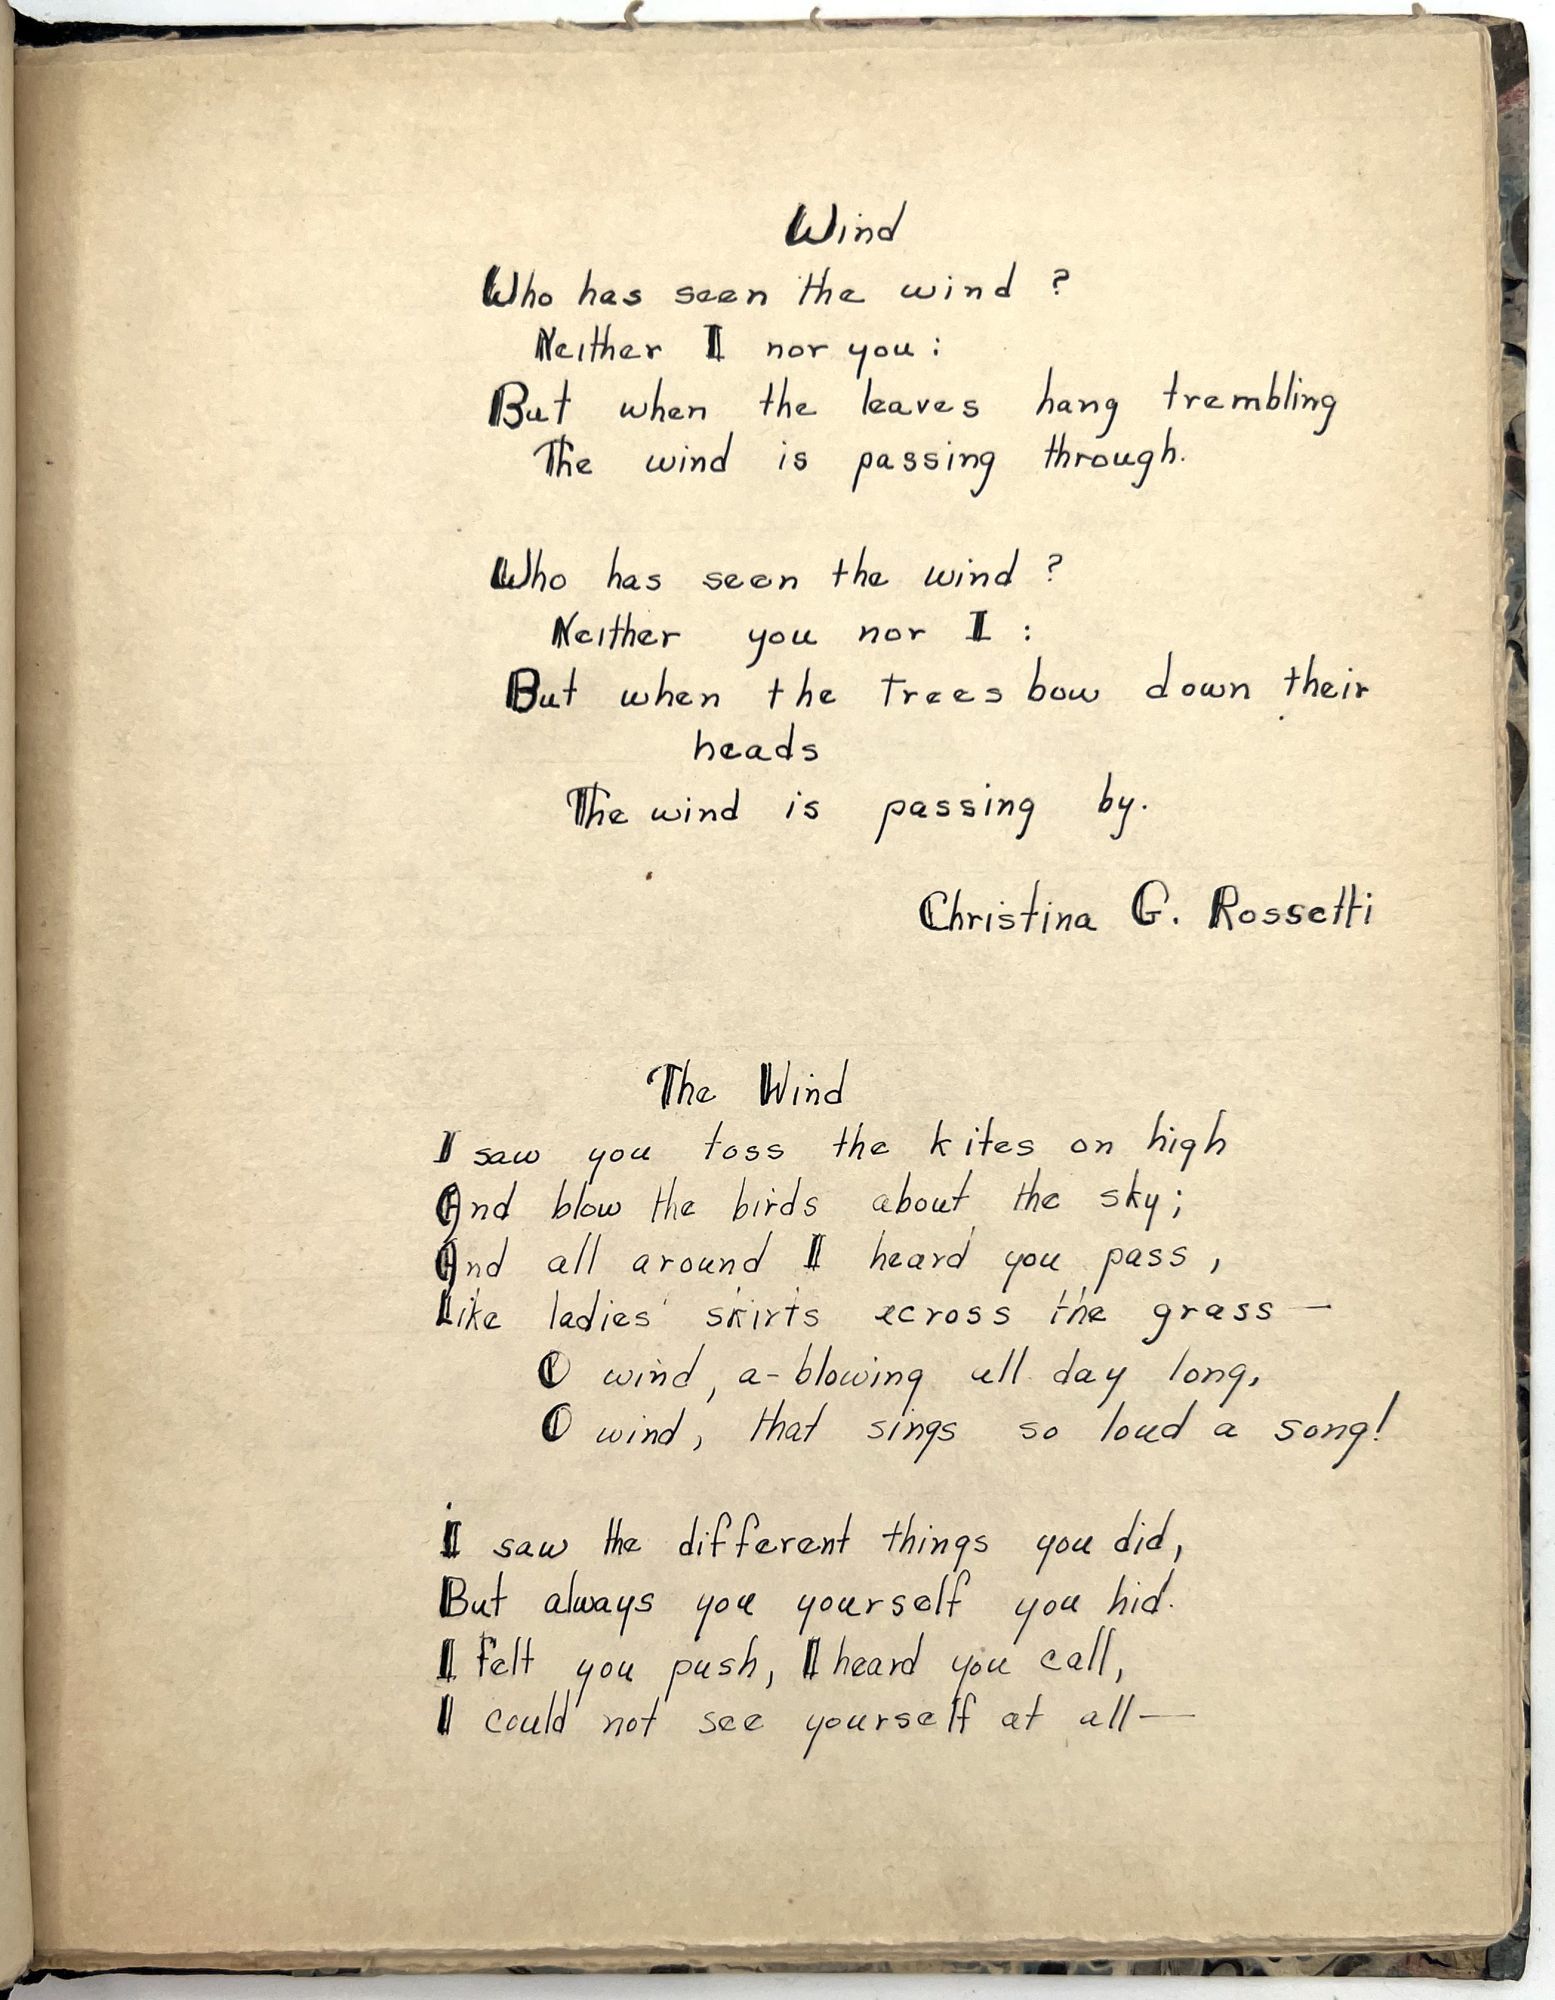 Wind
Who has seen the wind ?
Neither I nor you :
But when the leaves hang trembling
The wind is passing through.
Who has seen the wind ?
Neither you nor I :
But when the trees bow down their
heads
The wind is passing by.
Christina G. Rossetti
The Wind
I saw you toss the kites on high
And blow the birds about the sky;
And all around I heard you pass,
Like ladies' skirts across the grass —
O wind, a-blowing all day long,
O wind, that sings so loud a song!
I saw the different things you did,
But always you yourself you hid.
I felt you push, I heard you call,
I could not see yourself at all —